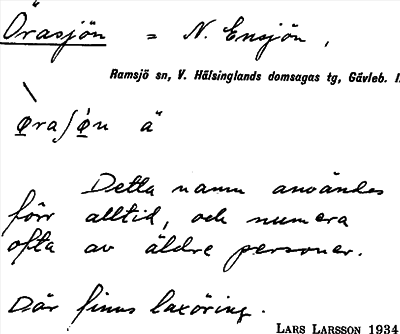 Örasjön = N. Ensjön,
Ramsjö sn, V. Hälsinglands domsagas tg, Gävleb. l.
øra∫øn ä
Detta namn användes
förr alltid, och numera
ofta av äldre personer.
Där finns laxöring.
LARS LARSSON 1934